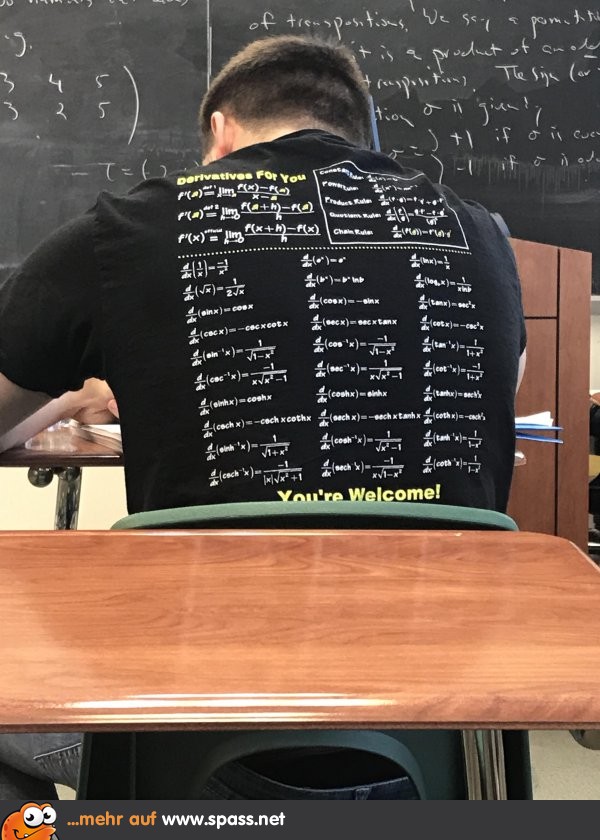 of transpositions. We say a
g.
it is a product of an
3 4 5
transposition. The sign (or
3 2 5
σ is given!
+1 if σ is
-1 if σ is
Derivatives For You
f'(a) = lim f(x)-f(a) / x-a
f'(a) = lim f(a+h)-f(a) / h
f'(x) = lim f(x+h)-f(x) / h
Constant Rule:
Power Rule:
Product Rule:
Quotient Rule:
Chain Rule:
d/dx (1/x) = -1/x² d/dx (eˣ) = eˣ d/dx (lnx) = 1/x
d/dx (√x) = 1/2√x d/dx (bˣ) = bˣ lnb d/dx (log_b x) = 1/xlnb
d/dx (sinx) = cosx d/dx (cosx) = -sinx d/dx (tanx) = sec²x
d/dx (cscx) = -cscxcotx d/dx (secx) = secxtanx d/dx (cotx) = -csc²x
d/dx (sin⁻¹x) = 1/√1-x² d/dx (cos⁻¹x) = -1/√1-x² d/dx (tan⁻¹x) = 1/1+x²
d/dx (csc⁻¹x) = -1/x√x²-1 d/dx (sec⁻¹x) = 1/x√x²-1 d/dx (cot⁻¹x) = -1/1+x²
d/dx (sinhx) = coshx d/dx (coshx) = sinhx d/dx (tanhx) = sech²x
d/dx (cschx) = -cschxcothx d/dx (sechx) = -sechxtanhx d/dx (cothx) = -csch²x
d/dx (sinh⁻¹x) = 1/√1+x² d/dx (cosh⁻¹x) = 1/√x²-1 d/dx (tanh⁻¹x) = 1/1-x²
d/dx (csch⁻¹x) = -1/|x|√x²+1 d/dx (sech⁻¹x) = -1/x√1-x² d/dx (coth⁻¹x) = 1/1-x²
You're Welcome!
...mehr auf www.spass.net